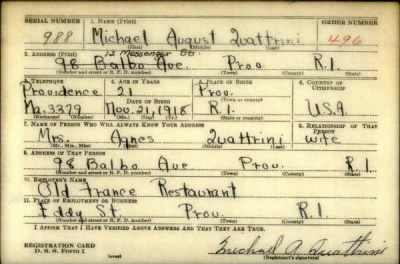 SERIAL NUMBER 1. NAME (Print) ORDER NUMBER
988 Michael August Quattrini 496
(First) (Middle) (Last)
12 Messenger St.
2. ADDRESS (Print)
98 Balbo Ave. Prov. R.I.
(Number and street or R. F. D. number) (Town) (County) (State)
3. TELEPHONE 4. AGE IN YEARS 5. PLACE OF BIRTH 6. COUNTRY OF CITIZENSHIP
Providence 21 Prov.
(Exchange) DATE OF BIRTH (Town or county)
Ma. 3379 Nov. 21, 1918 R.I. U.S.A
(Number) (Mo.) (Day) (Yr.) (State or country)
7. NAME OF PERSON WHO WILL ALWAYS KNOW YOUR ADDRESS 8. RELATIONSHIP OF THAT PERSON
Mrs. Agnes Quattrini wife
(Mr., Mrs., Miss) (First) (Middle) (Last)
9. ADDRESS OF THAT PERSON
98 Balbo Ave Prov. R.I.
(Number and street or R. F. D. number) (Town) (County) (State)
10. EMPLOYER'S NAME
Old France Restaurant
11. PLACE OF EMPLOYMENT OR BUSINESS
Eddy St. Prov. R.I.
(Number and street or R. F. D. number) (Town) (County) (State)
I AFFIRM THAT I HAVE VERIFIED ABOVE ANSWERS AND THAT THEY ARE TRUE.
REGISTRATION CARD
D. S. S. Form 1 (over) Michael A. Quattrini
(Registrant's signature)